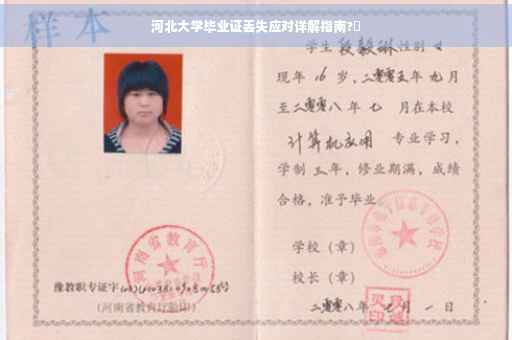 河北大学毕业证丢失应对详解指南?
样本
学生 段毅琳 性别 女
现年 16 岁，二零零五年 九 月
至二零零八年 七 月在本校
计算机应用 专业学习，
学制 三 年，修业期满，成绩
合格，准予毕业
学校（章）
校长（章）
二零零八年 七 月 一 日
河南省教育厅
豫教职专证字
（河南省教育厅验印）